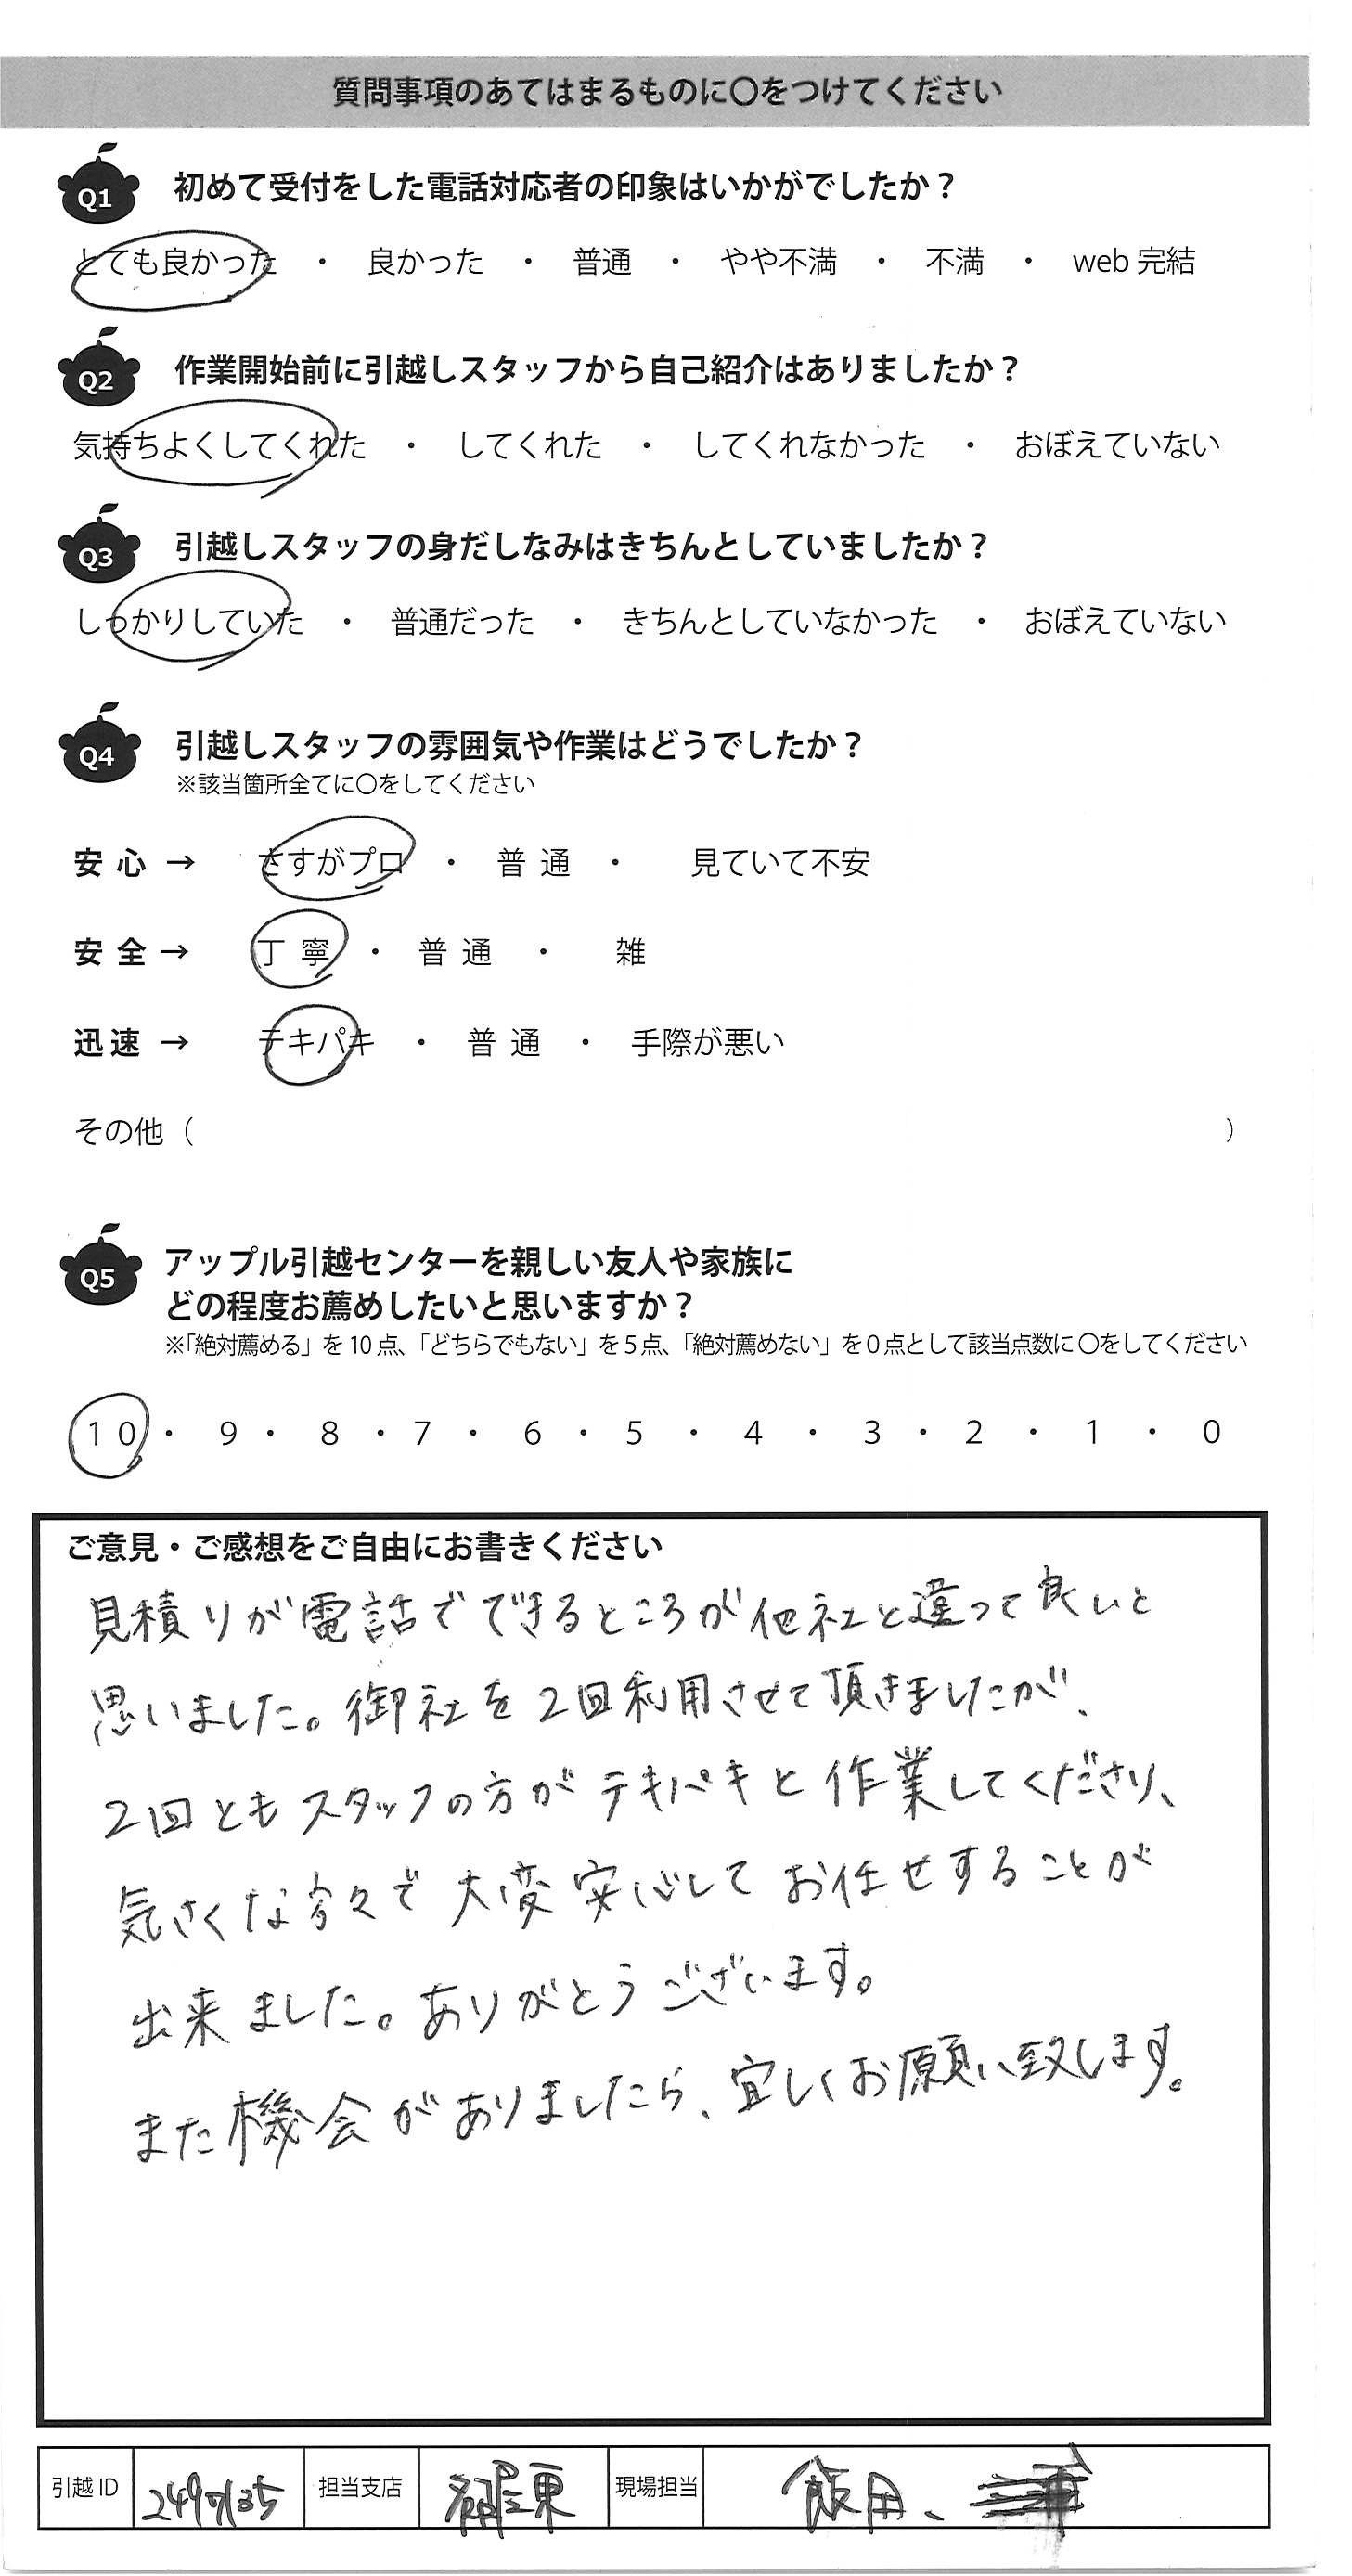 質問事項のあてはまるものに〇をつけてください
Q1 初めて受付をした電話対応者の印象はいかがでしたか？
とても良かった ・ 良かった ・ 普通 ・ やや不満 ・ 不満 ・ web 完結
Q2 作業開始前に引越しスタッフから自己紹介はありましたか？
気持ちよくしてくれた ・ してくれた ・ してくれなかった ・ おぼえていない
Q3 引越しスタッフの身だしなみはきちんとしていましたか？
しっかりしていた ・ 普通だった ・ きちんとしていなかった ・ おぼえていない
Q4 引越しスタッフの雰囲気や作業はどうでしたか？
※該当箇所全てに〇をしてください
安心 → さすがプロ ・ 普通 ・ 見ていて不安
安全 → 丁寧 ・ 普通 ・ 雑
迅速 → テキパキ ・ 普通 ・ 手際が悪い
その他（ ）
Q5 アップル引越センターを親しい友人や家族に
どの程度お薦めしたいと思いますか？
※「絶対薦める」を10点、「どちらでもない」を5点、「絶対薦めない」を0点として該当点数に〇をしてください
10 ・ 9 ・ 8 ・ 7 ・ 6 ・ 5 ・ 4 ・ 3 ・ 2 ・ 1 ・ 0
ご意見・ご感想をご自由にお書きください
見積りが電話でできるところが他社と違って良いと
思いました。御社を2回利用させて頂きましたが、
2回ともスタッフの方がテキパキと作業してくださり、
気さくな方々で大変安心してお任せすることが
出来ました。ありがとうございます。
また機会がありましたら、宜しくお願い致します。
引越ID 担当支店 現場担当 飯田、